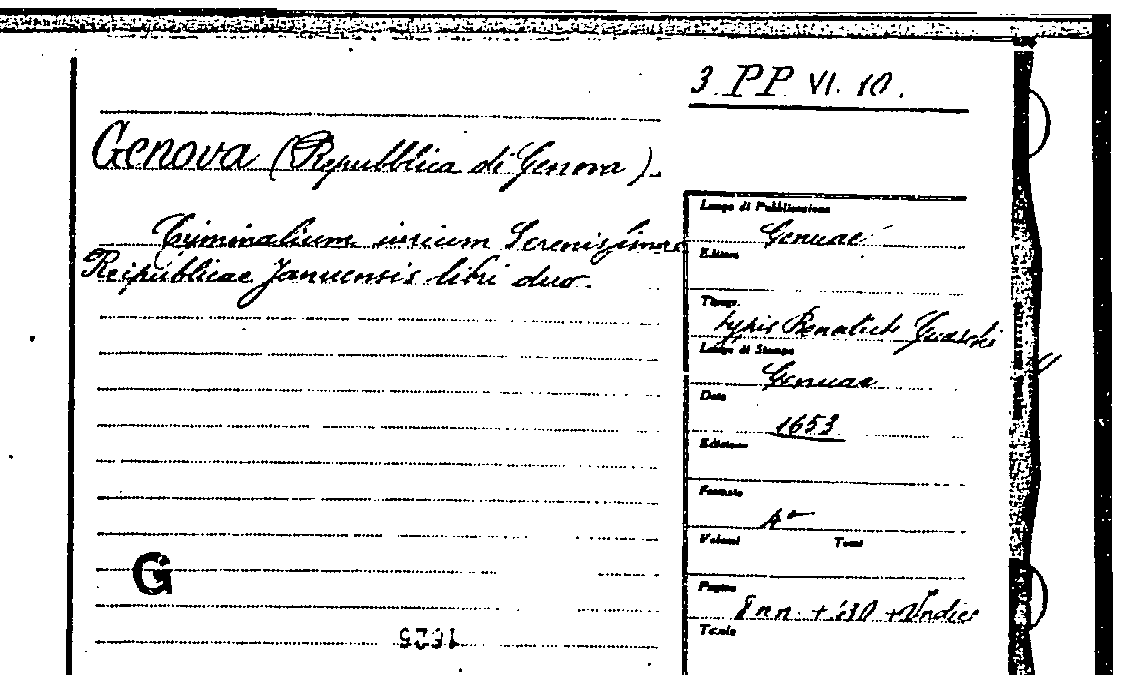 3. PP. VI. 10.
Genova (Repubblica di Genova).
Criminalium iurium Serenissimae
Reipublicae Januensis libri duo.
Luogo di Pubblicazione
Genuae
Editore
Tipogr.
typis Benedicti Guaschi
Luogo di Stampa
Genuae
Data
1653
Edizione
Formato
4º
Volumi Tomi
Pagine
8 nn. + + Indice
Tavole
G